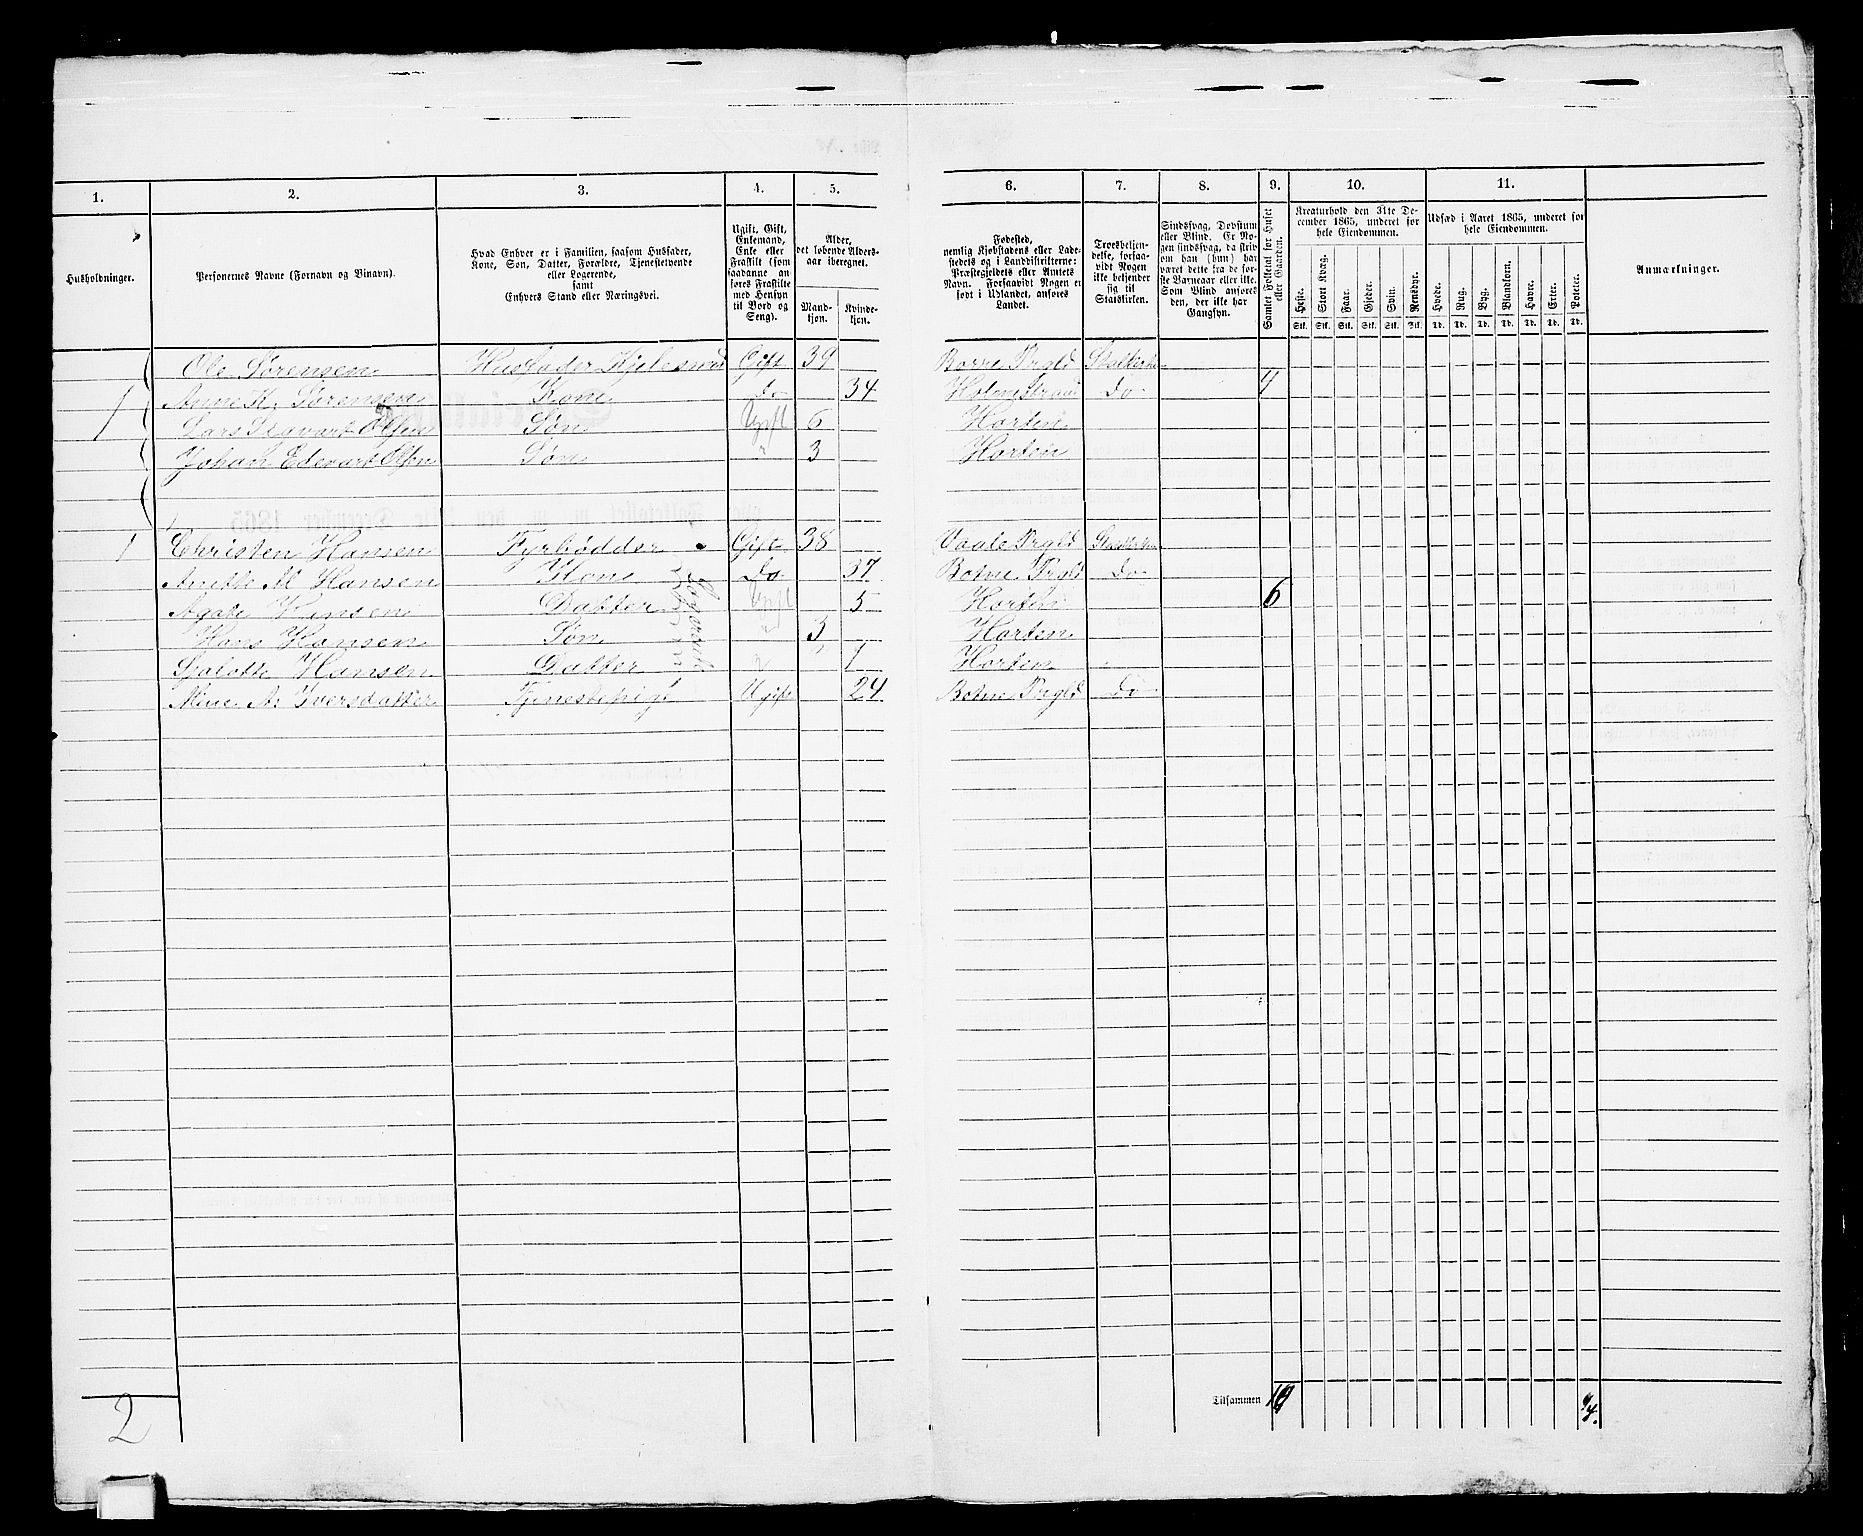 1. 2. 3. 4. 5. 6. 7. 8. 9. 10. 11.
Husholdninger.
Personernes Navne (Fornavn og Binavn).
Hvad Enhver er i Familien, saasom Husfader,
Kone, Søn, Datter, Forældre, Tjenestetyende
eller Logerende,
samt
Enhvers Stand eller Næringsvei.
Ugift, Gift,
Enkemand,
Enke eller
Fraskilt (som
saadanne an-
føres Fraskilte
med Hensyn
til Bord og
Seng).
Alder,
det løbende Alders-
aar iberegnet.
Mand-
kjøn.
Kvinde-
kjøn.
Fødested,
nemlig Kjøbstadens eller Lade-
stedets og i Landdistrikterne:
Præstegjeldets eller Amtets
Navn. Forsaavidt Nogen er
født i Udlandet, anføres
Landet.
Troesbekjen-
delse, forsaa-
vidt Nogen
ikke bekjender
sig til
Statskirken.
Sindssvag, Døvstum
eller Blind. Er No-
gen sindssvag, da skriv
om han (hun) har
været dette fra de før-
ste Barneaar eller ikke.
Som Blind anføres
den, der ikke har
Gangsyn.
Samlet Folketal for Huset
eller Gaarden.
Kreaturhold den 31te De-
cember 1865, underet for
hele Eiendommen.
Heste. Stort Kvæg. Faar. Gjeder. Svin. Rensdyr.
Stk. Stk. Stk. Stk. Stk. Stk.
Udsæd i Aaret 1865, underet for
hele Eiendommen.
Hvede. Rug. Byg. Blandkorn. Havre. Erter. Poteter.
Td. Td. Td. Td. Td. Td. Td.
Anmærkninger.
Ole Sørensen Husfader Gift 39 Borre Prgld Statkirken
1 Anne K. Sørensen Kone do 34 Holmestrand do 4
Lars Edevart Olsen Søn Ugift 6 Horten
Johan Edevart Olsen Søn " 3 Horten
1 Christen Hansen Fyrbødder Gift 38 Vaale Prgld Statkirken
Anette M Hansen Kone do 37 Botne Prgld do
Agate Hansen Datter Ugift 5 Horten 6
Hans Hansen Søn " 3 Horten
Hansen Datter " 1 Horten
Mine A. Iversdatter Tjenestepige Ugift 24 Botne Prgld do
Tilsammen
2